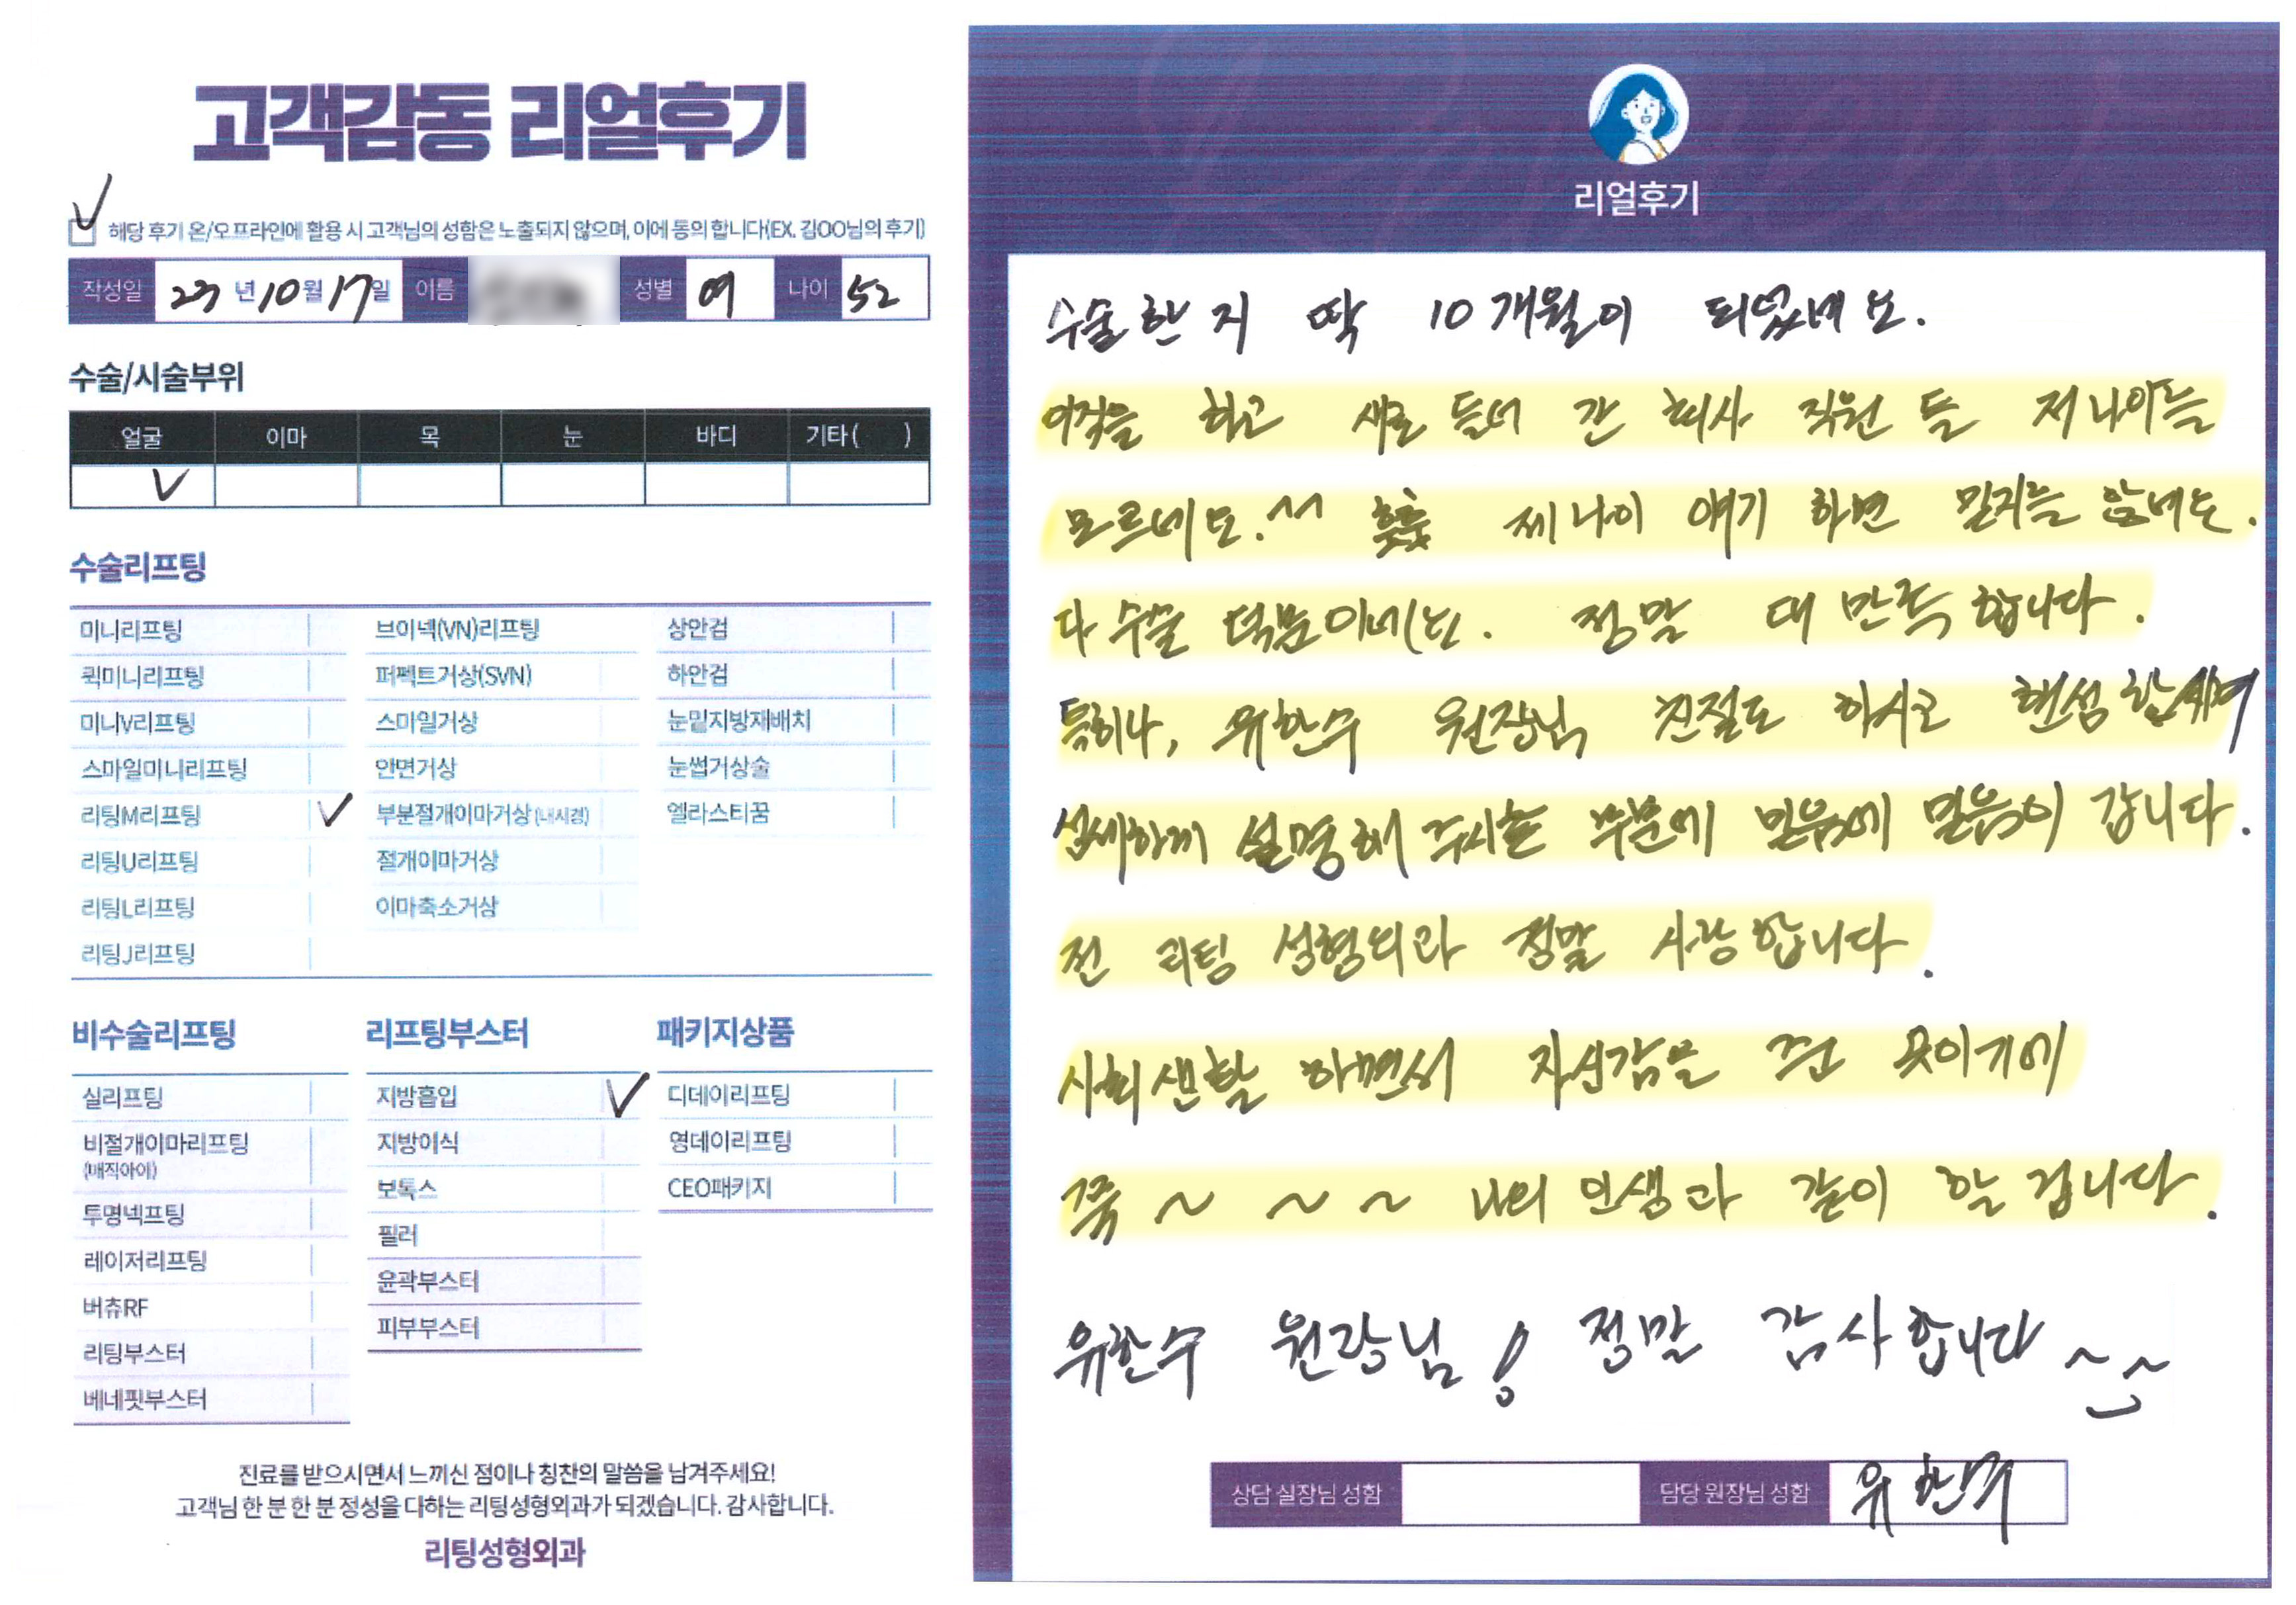 고객감동 리얼후기
해당 후기 온/오프라인에 활용 시 고객님의 성함은 노출되지 않으며, 이에 동의 합니다(EX. 김OO님의 후기)
작성일 23년 10월 17일 이름 성별 여 나이 52
수술/시술부위
얼굴 이마 목 눈 바디 기타( )
수술리프팅
미니리프팅 브이넥(VN)리프팅 상안검
퀵미니리프팅 퍼펙트거상(SVN) 하안검
미니V리프팅 스마일거상 눈밑지방재배치
스마일미니리프팅 안면거상 눈썹거상술
리팅M리프팅 부분절개이마거상(내시경) 엘라스티꿈
리팅U리프팅 절개이마거상
리팅L리프팅 이마축소거상
리팅J리프팅
비수술리프팅 리프팅부스터 패키지상품
실리프팅 지방흡입 디데이리프팅
비절개이마리프팅 지방이식 영데이리프팅
(매직아이)
보톡스 CEO패키지
투명넥프팅 필러
레이저리프팅 윤곽부스터
버츄RF 피부부스터
리팅부스터
베네핏부스터
진료를 받으시면서 느끼신 점이나 칭찬의 말씀을 남겨주세요!
고객님 한 분 한 분 정성을 다하는 리팅성형외과가 되겠습니다. 감사합니다.
리팅성형외과
리얼후기
수술한지 딱 10개월이 되었네요.
이것을 하고 새로 들어 간 회사 직원 들 저 나이를
모르네요.^^ 제 나이 얘기 하면 믿지를 않네요.
다 수술 덕분이네요. 정말 대 만족 합니다.
특히나, 유한수 원장님 친절도 하시고
섬세하게 설명해 주시는 부분에 믿음에 믿음이 갑니다.
전 리팅 성형외과 정말 사랑합니다.
사회생활 하면서 자신감을 준 곳이기에
쭉~ ~ ~ 나의 인생과 같이 할 겁니다.
유한수 원장님! 정말 감사합니다~~
상담 실장님 성함 담당 원장님 성함 유한수